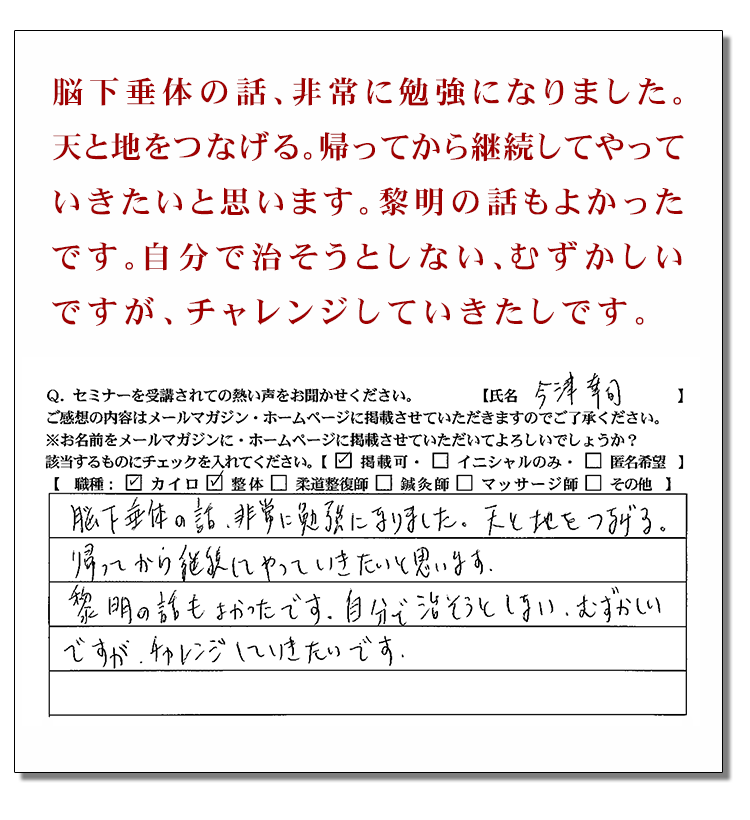 脳下垂体の話、非常に勉強になりました。
天と地をつなげる。帰ってから継続してやって
いきたいと思います。黎明の話もよかった
です。自分で治そうとしない、むずかしい
ですが、チャレンジしていきたしです。
Q．セミナーを受講されての熱い声をお聞かせください。 【氏名 今津幸司 】
ご感想の内容はメールマガジン・ホームページに掲載させていただきますのでご了承ください。
※お名前をメールマガジンに・ホームページに掲載させていただいてよろしいでしょうか？
該当するものにチェックを入れてください。【 ☑ 掲載可・ □ イニシャルのみ・ □ 匿名希望 】
【 職種： ☑ カイロ ☑ 整体 □ 柔道整復師 □ 鍼灸師 □ マッサージ師 □ その他 】
脳下垂体の話、非常に勉強になりました。天と地をつなげる。
帰ってから継続してやっていきたいと思います。
黎明の話もよかったです。自分で治そうとしない、むずかしい
ですが、チャレンジしていきたいです。